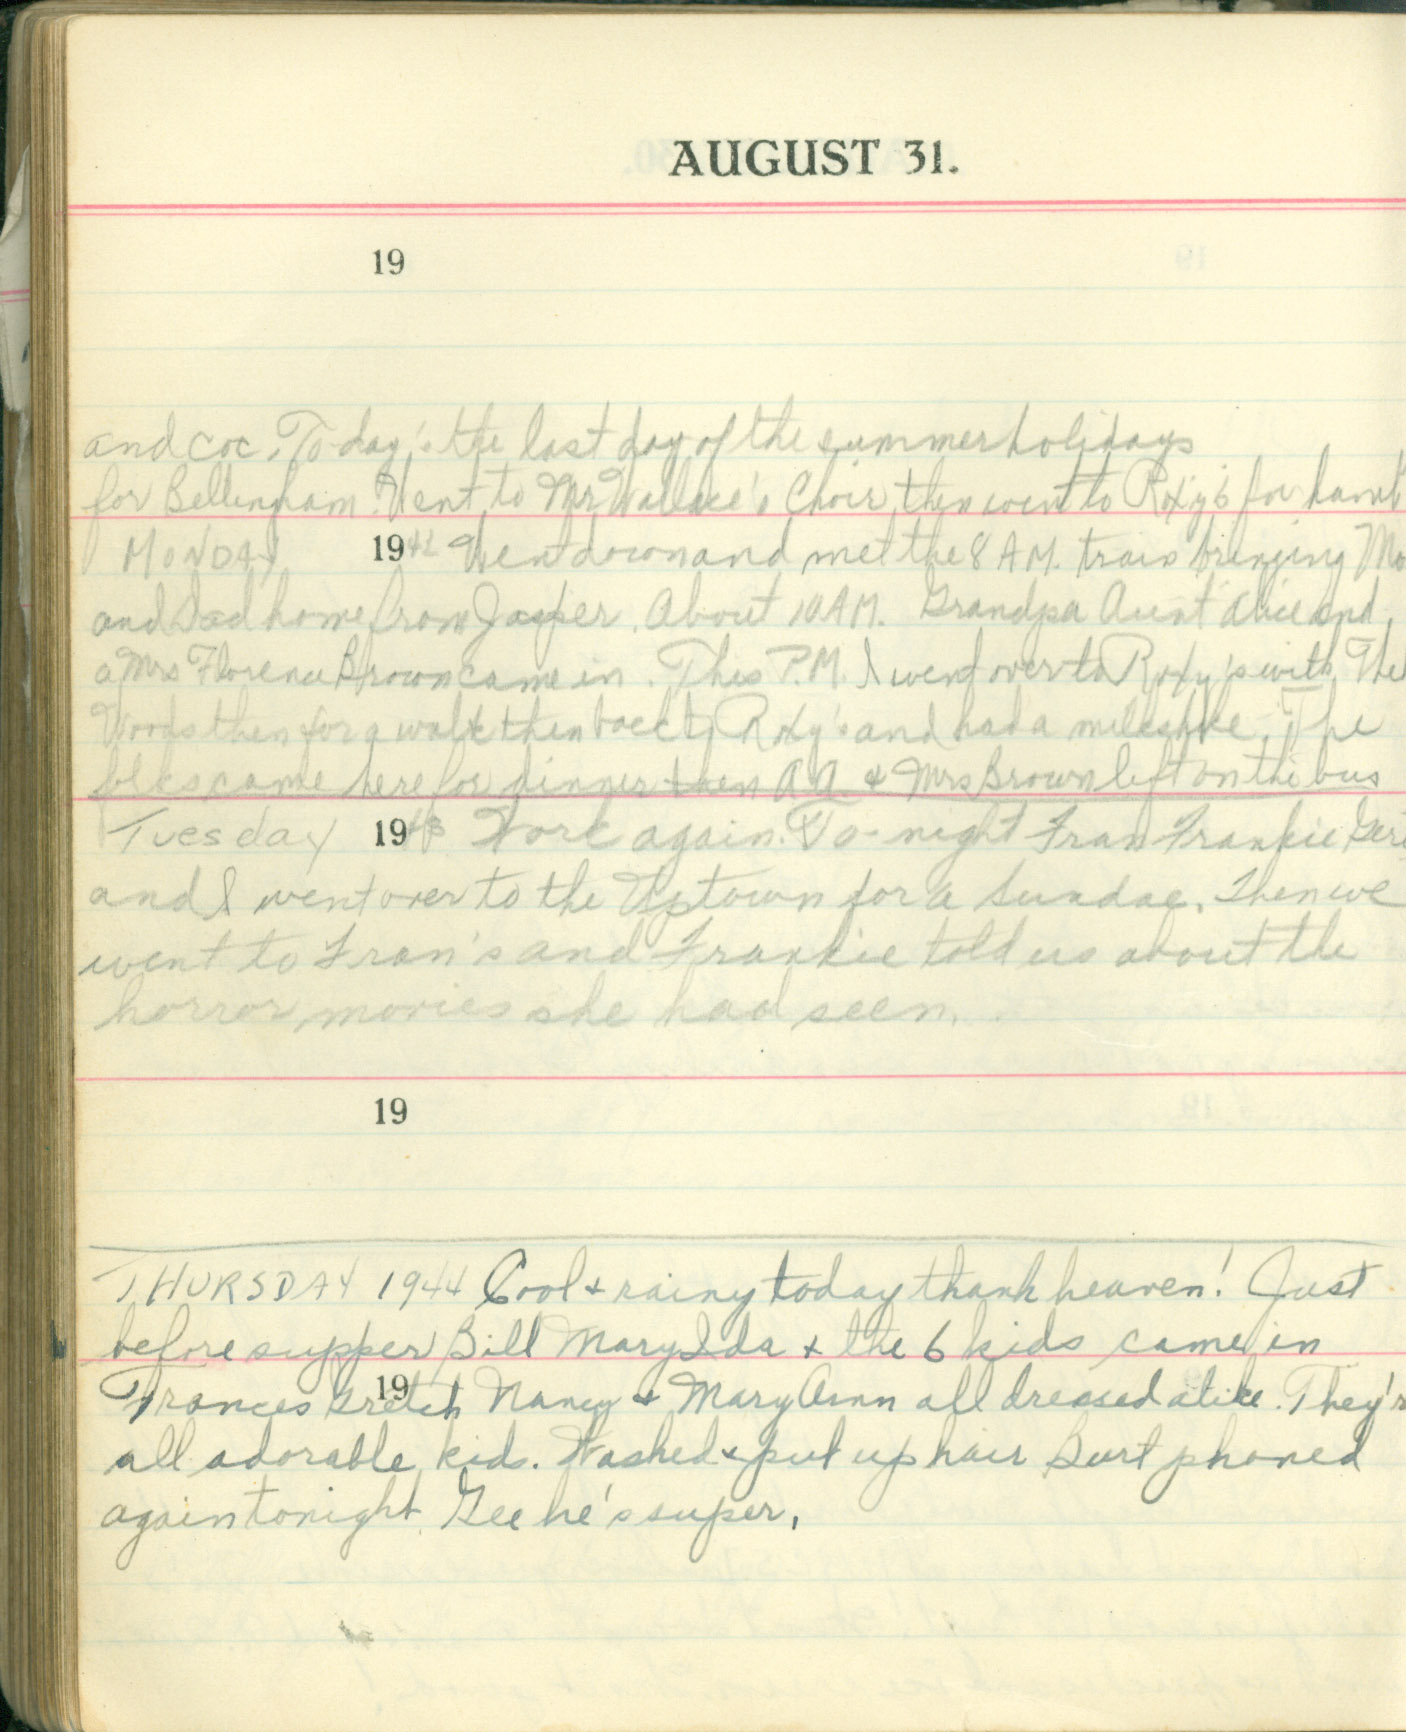 AUGUST 31.
19
and coc. To-day's the last day of the summer holidays
for Bellingham. Went to Mr Wallace's Choir, then went to Roxy's for hamb
MONDAY 1942 Went down and met the 8 A.M. train bringing Mo
and Dad home from Jasper. About 10 A.M. Grandpa Aunt Alice and
a Mrs Florence Brown came in. This P.M. I went over to Roxy's with The
Woods then for a walk then back to Roxy's and had a milkshke. The
folks came here for dinner then A.A. & Mrs Brown left on the bus
Tuesday 1943 Work again. To-night Fran Frankie Geri
and I went over to the Uptown for a Sundae. Then we
went to Fran's and Frankie told us about the
horror movies she had seen.
19
THURSDAY 1944 Cool & rainy today thank heaven! Just
before supper Bill Mary Ida & the 6 kids came in
19
Frances Gretch Nancy & Mary Ann all dressed alike. They'r
all adorable kids. Washed & put up hair Burt phoned
again tonight. Gee he's super.